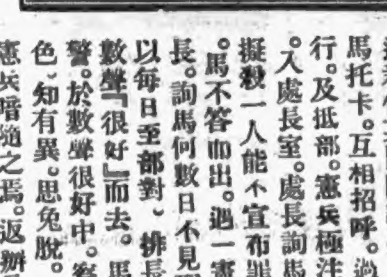 馬托卡。互相招呼。
行。及抵部。憲兵極注
。入處長室。處長詢馬
擬殺一人能不宣布罪
。馬不答而出。遇一憲
長。詢馬何數日不見
以每日至部對、排長
數聲『很好』而去。馬
警。於數聲很好中。察
色、知有異。思兔脫。
憲兵暗隨之焉。返辦